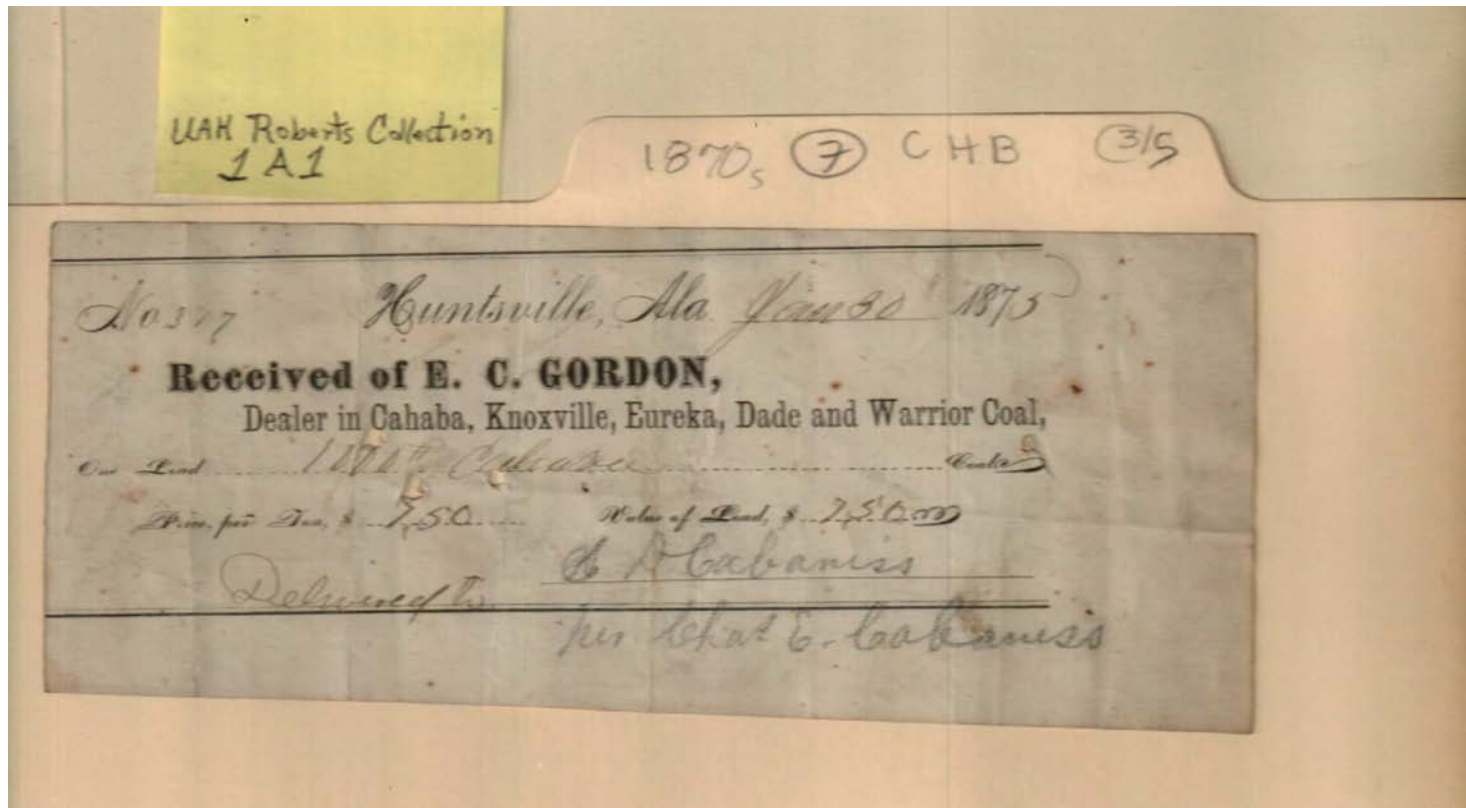 UAH Roberts Collection
1A1
1870s 7 CHB 3/5
No 377 Huntsville, Ala Jan 30 1875
Received of E. C. GORDON,
Dealer in Cahaba, Knoxville, Eureka, Dade and Warrior Coal,
One Load Coal
Price, per Ton, $ 7.50 Value of Load, $ 7.50
S D Cabaniss
Delivered to
per Chas E. Cabaniss